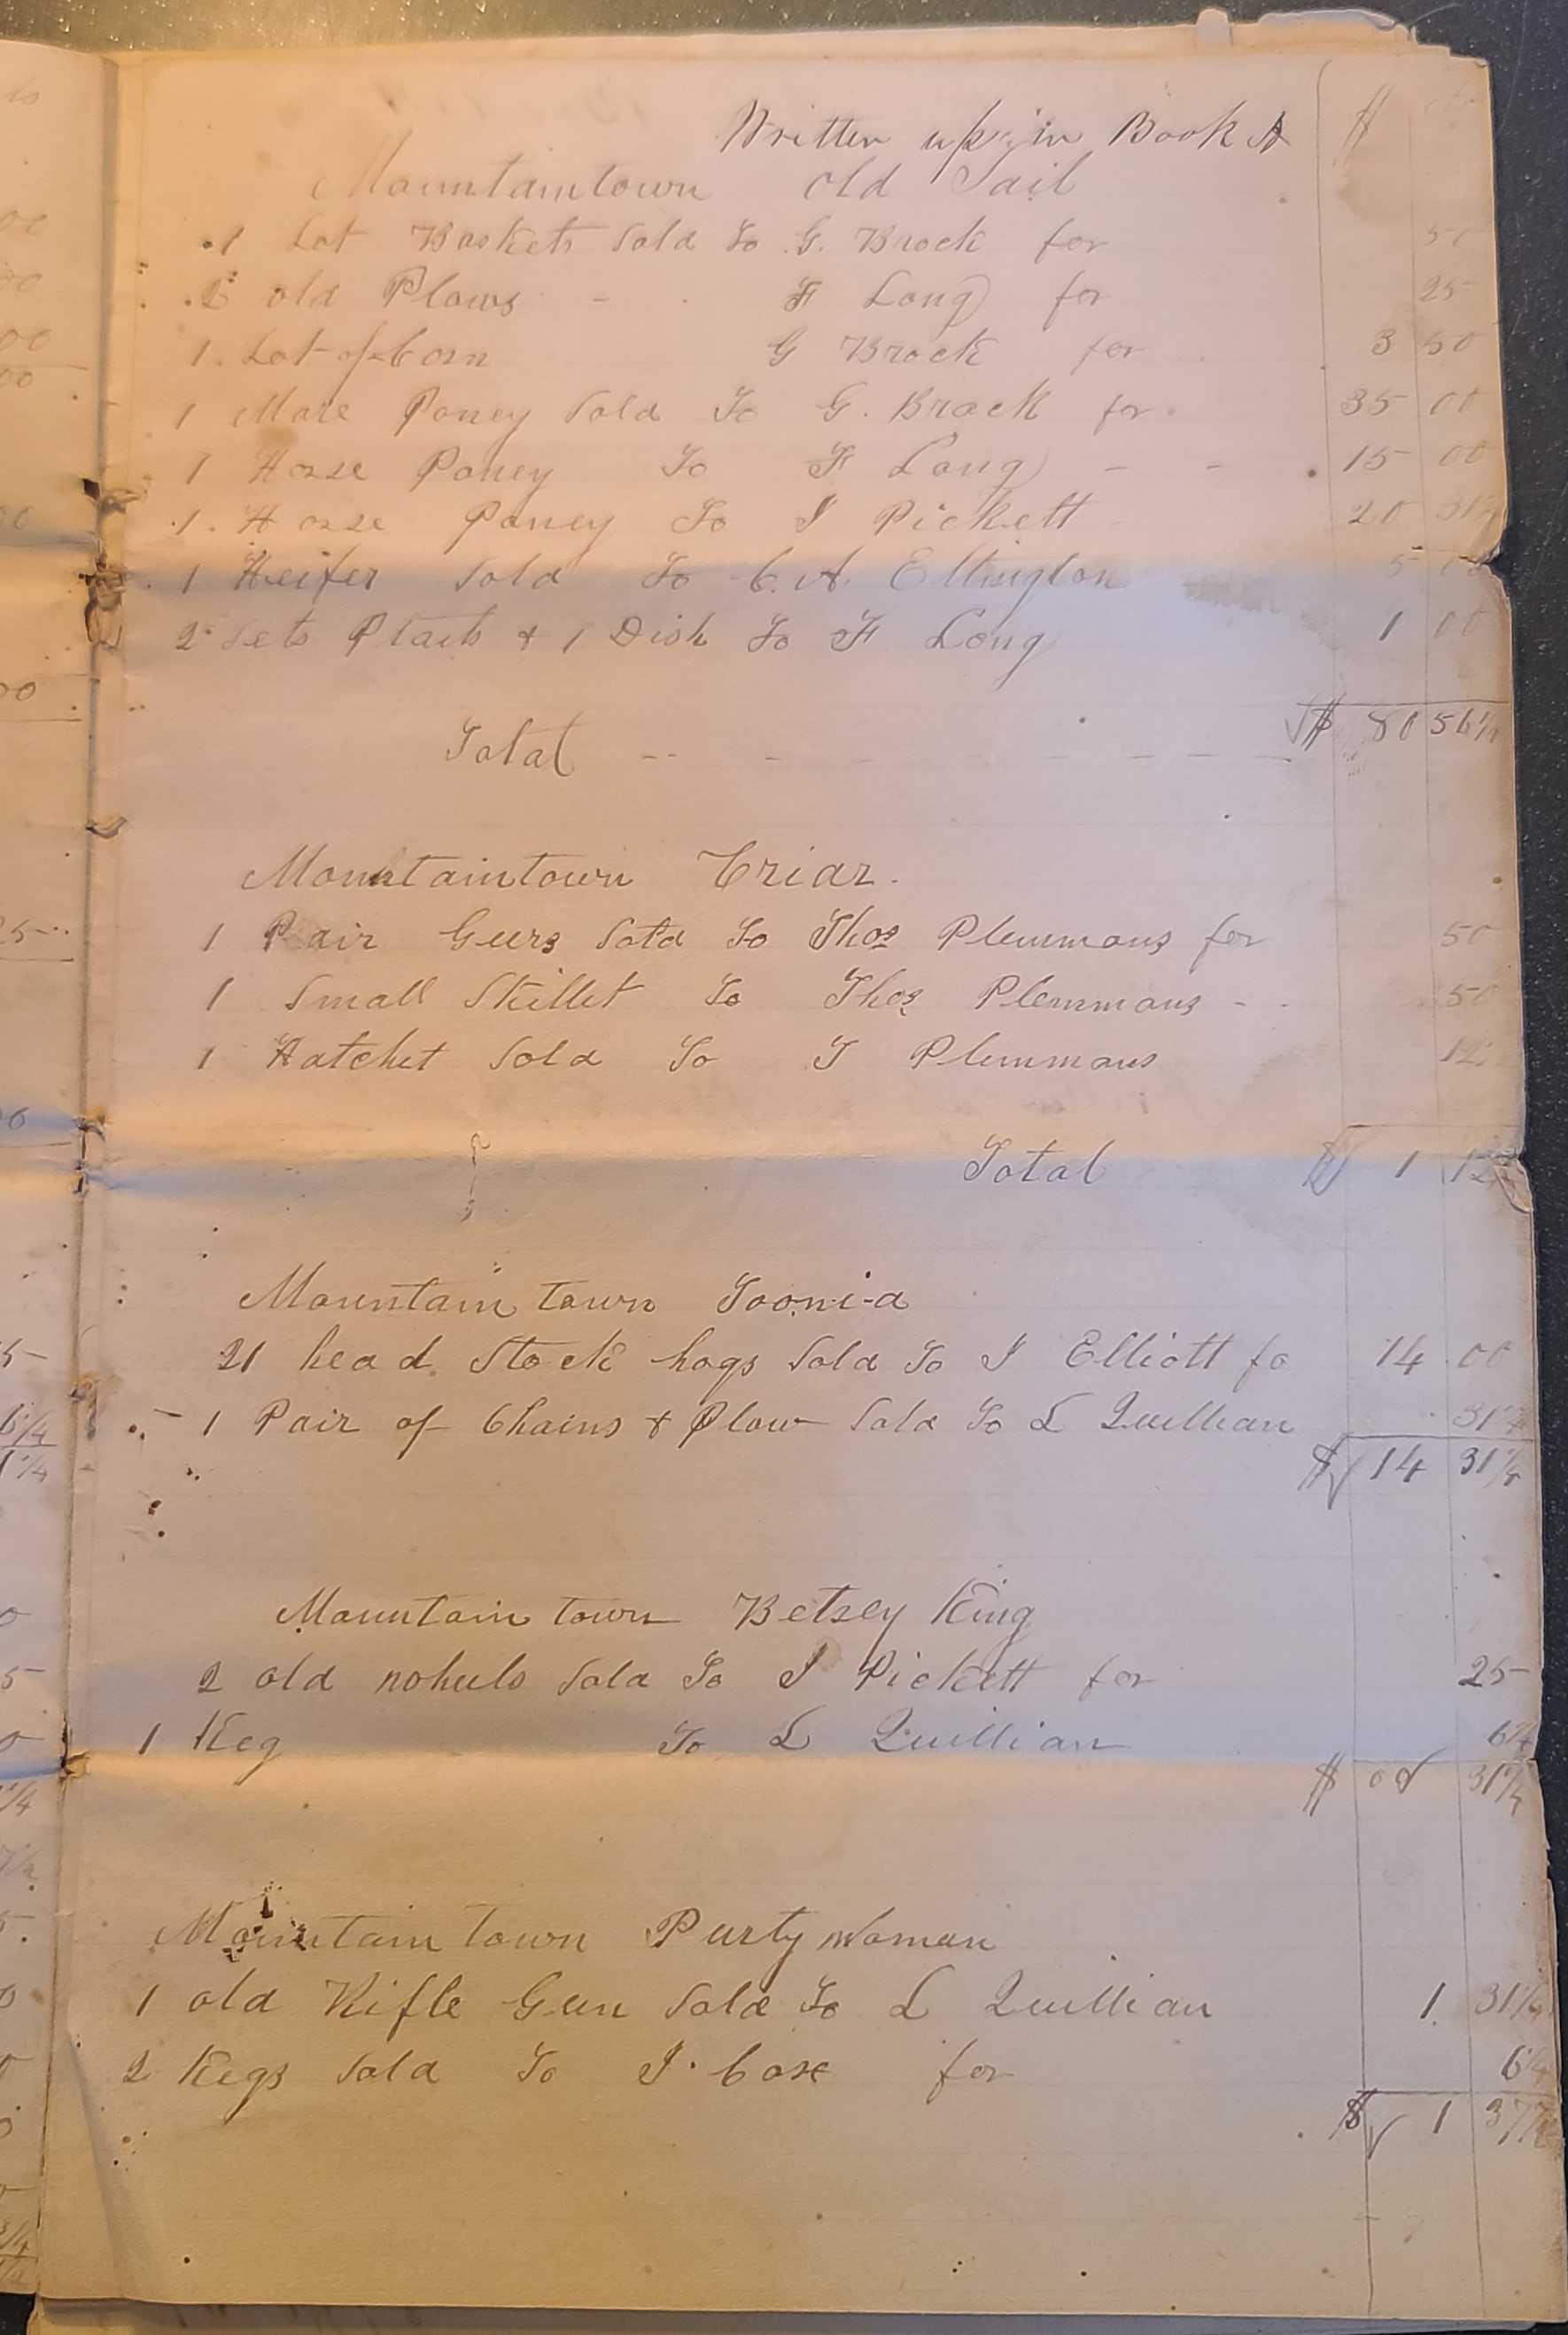 Written up in Book A
$
Mountaintown Old Sail
1 Lot Baskets Sold To G. Brock for 50
2 old Plows - F Long for 25
1. Lot of Corn G Brock for 3 50
1 Mare Poney Sold To G. Brock for 35 00
1 Horse Poney To F Long - - 15 00
1. Horse Poney To J Pickett 20 31¼
1 Heifer Sold To C. A. Ellington 5
2 Sets Plaits & 1 Dish To F Long 1 00
Total $ 80 56¼
Mountaintown Criar.
1 Pair Geers Sold To Thos Plemmons for 50
1 Small Skillet To Thos Plemmons - - 50
1 Hatchet Sold To T Plemmons 12
Total $ 1 12
Mountain town Toon-i-a
21 head Stock hogs Sold To J Elliott fo 14 00
1 Pair of Chains & Plow Sold To L Quillian 31¼
$ 14 31¼
Mountain town Betsey King
2 old Sold To J Pickett for 25
1 Keg To L Quillian 6¼
$ 00 31¼
Mountain town Purty Woman
1 old Rifle Gun Sold To L Quillian 1 31¼
2 Kegs Sold To J. Cox for 6¼
$ 1 37½